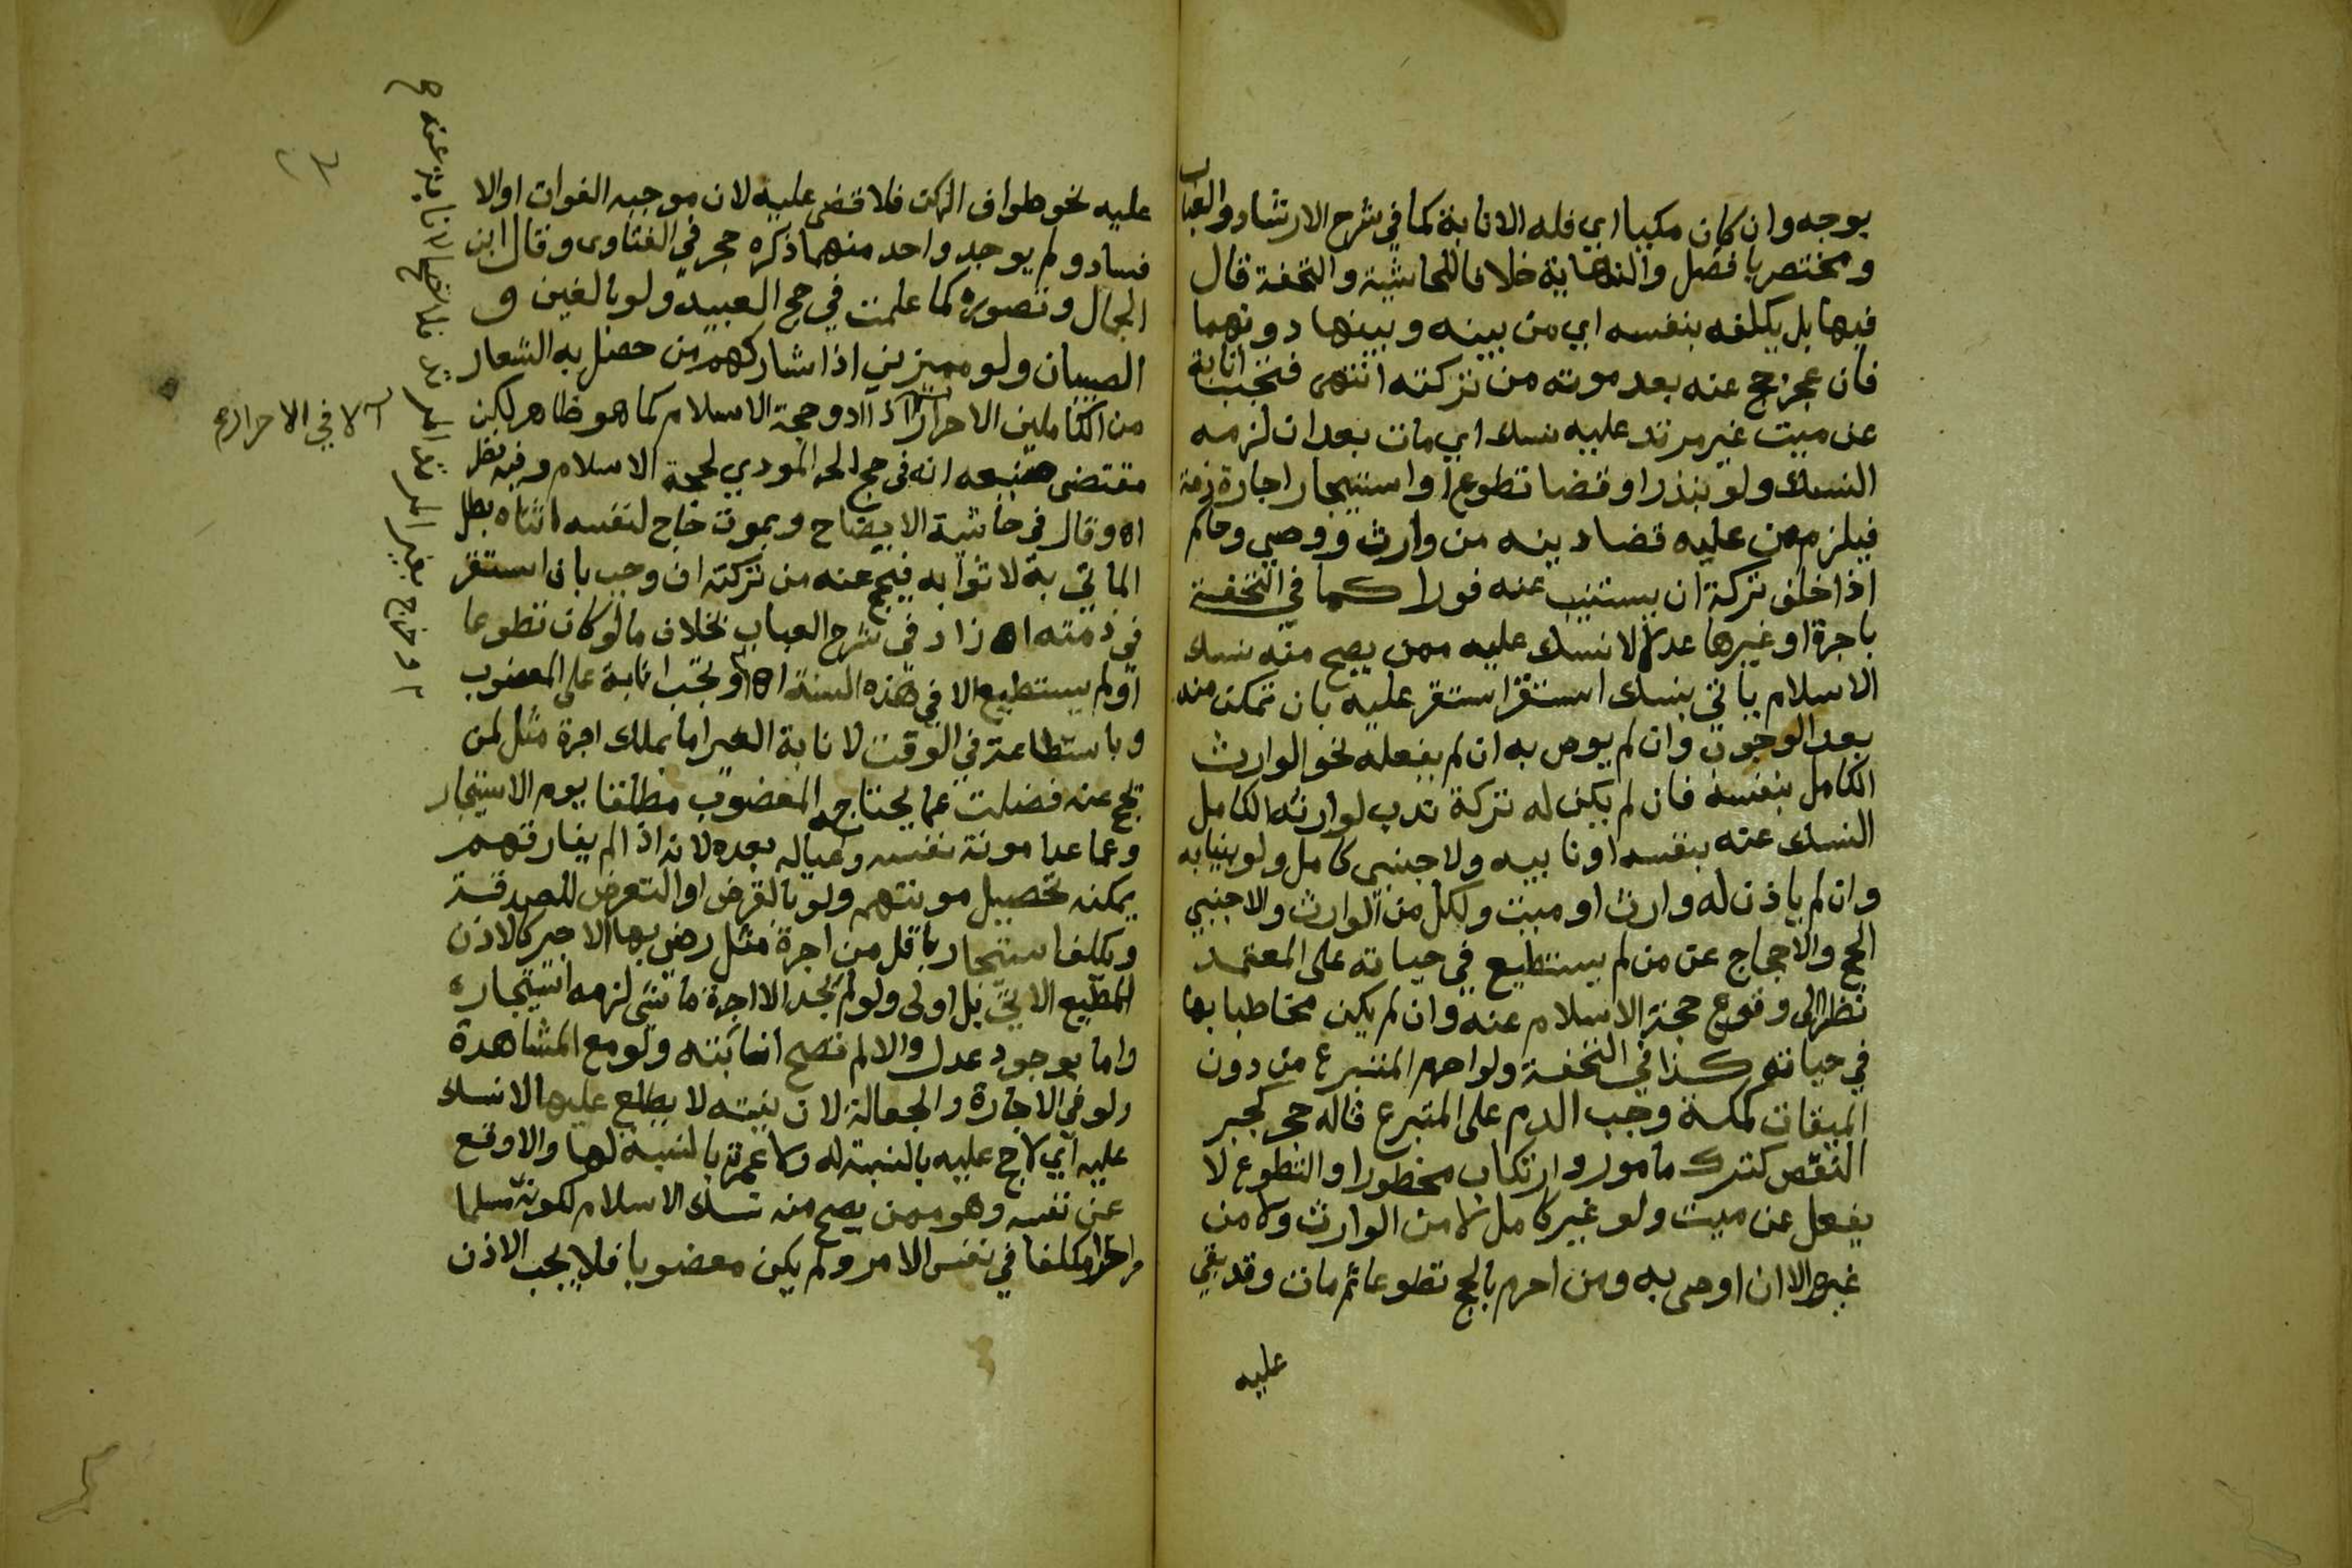 يوجه وان كان مكيا اي فله الانابة كما في شرح الارشاد والعباب
ومختصر بافضل والنهاية خلافا للحاشية والتحفة قال
فيها بل يكلفه بنفسه اي من بينه وبينها دونهما
فان عجز حج عنه بعد موته من تركته انتهى فتجب انابة
عن ميت غير مرتد عليه نسك اي مات بعد ان لزمه
النسك ولو بنذر او قضا تطوع او استيجار اجارة ذمة
فيلزم من عليه قضا دينه من وارث ووصي وحاكم
اذا خلف تركة ان يستنيب عنه فورا كما في التحفة
باجرة او غيرها عدلا لا نسك عليه ممن يصح منه نسك
الاسلام ياتي بنسك استقر استقر عليه بان تمكن منه
بعد الوجوب وان لم يوص به ان لم يفعله نحو الوارث
الكامل بنفسه فان لم يكن له تركة ندب لوارثه الكامل
النسك عنه بنفسه او نايبه ولاجنبي كامل ولو بنيابه
وان لم ياذن له وارث او ميت ولكل من الوارث والاجنبي
الحج والاحجاج عن من لم يستطيع في حياته على المعتمد
نظرا الى وقوع حجة الاسلام عنه وان لم يكن مخاطبا بها
في حياته كذا في التحفة ولو احرم المتبرع من دون
الميقات كمكة وجب الدم على المتبرع قاله حجر كجبر
النقص كترك مامور وارتكاب محظور والتطوع لا
يفعل عن ميت ولو غير كامل لا من الوارث ولا من
غيره الا ان اوصى به ومن احرم بالحج تطوعا ثم مات وقد بقي
عليه
عليه نحو طواف الركن فلا قضى عليه لان موجبه الفوات او الا
فساد ولم يوجد واحد منهما ذكره حجر في الفتاوى وقال ابن
الجمال وتصوره كما علمت في حج العبيد ولو بالغين و
الصبيان ولو مميزين اذا شاركهم من حصل به الشعار
من الكاملين الاحرار اذ ادوا حجة الاسلام كما هو ظاهر لكن
مقتضى صنيعه انه في حج الحر المودي لحجة الاسلام وفيه نظر
اه وقال في حاشية الايضاح وبموت حاج لنفسه اثناه بطل
الماتي به لا ثوابه فيحج عنه من تركته ان وجب بان استقر
في ذمته اه زاد في شرح العباب بخلاف ما لو كان تطوعا
او لم يستطيع الا في هذه السنة اه وتجب انابة على المعضوب
وباستطاعة في الوقت لانابة الغير اما بملك اجرة مثل لمن
يحج عنه فضلت عما يحتاجه المعضوب مطلقا يوم الاستيجار
وعما عدا مونة نفسه وعياله بعده لانه اذا لم يفارقهم
يمكنه تحصيل مونتهم ولو بالقرض او التعرض للصدقة
ويكلف استيجار باقل من اجرة مثل رضي بها الاجير كالاذن
المطيع الاتي بل اولى ولو لم يجد الا اجرة ماشي لزمه استيجاره
واما بوجود عدل والا لم تصح انابته ولو مع المشاهدة
ولو في الاجارة والجعالة لان نيته لا يطلع عليها لا نسك
عليه اي لا حج عليه بالنسبة له ولا عمرة بالنسبة لها والا وقع
عن نفسه وهو ممن يصح منه نسك الاسلام لكونه مسلما
حرا مكلفا في نفس الامر ولم يكن معضوبا فلا يجب الاذن
الا في الاحرار